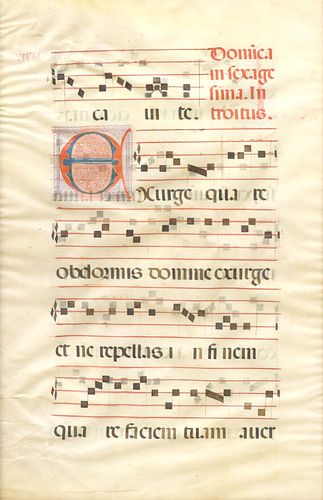 Domica
in sexage
sima. In
troitus.
ca ui te
EXurge qua re
obdormis domine exurge
et ne repellas i n fi nem
qua re faciem tuam auer